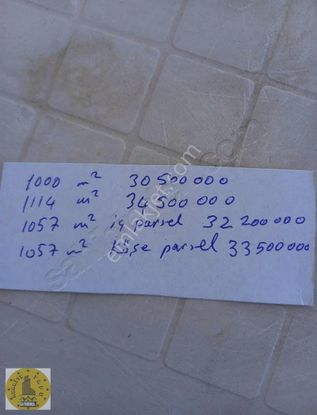 1000 m² 30 500 000
1114 m² 34 500 000
1057 m² iç parsel 32 200 000
1057 m² köşe parsel 33 500 000